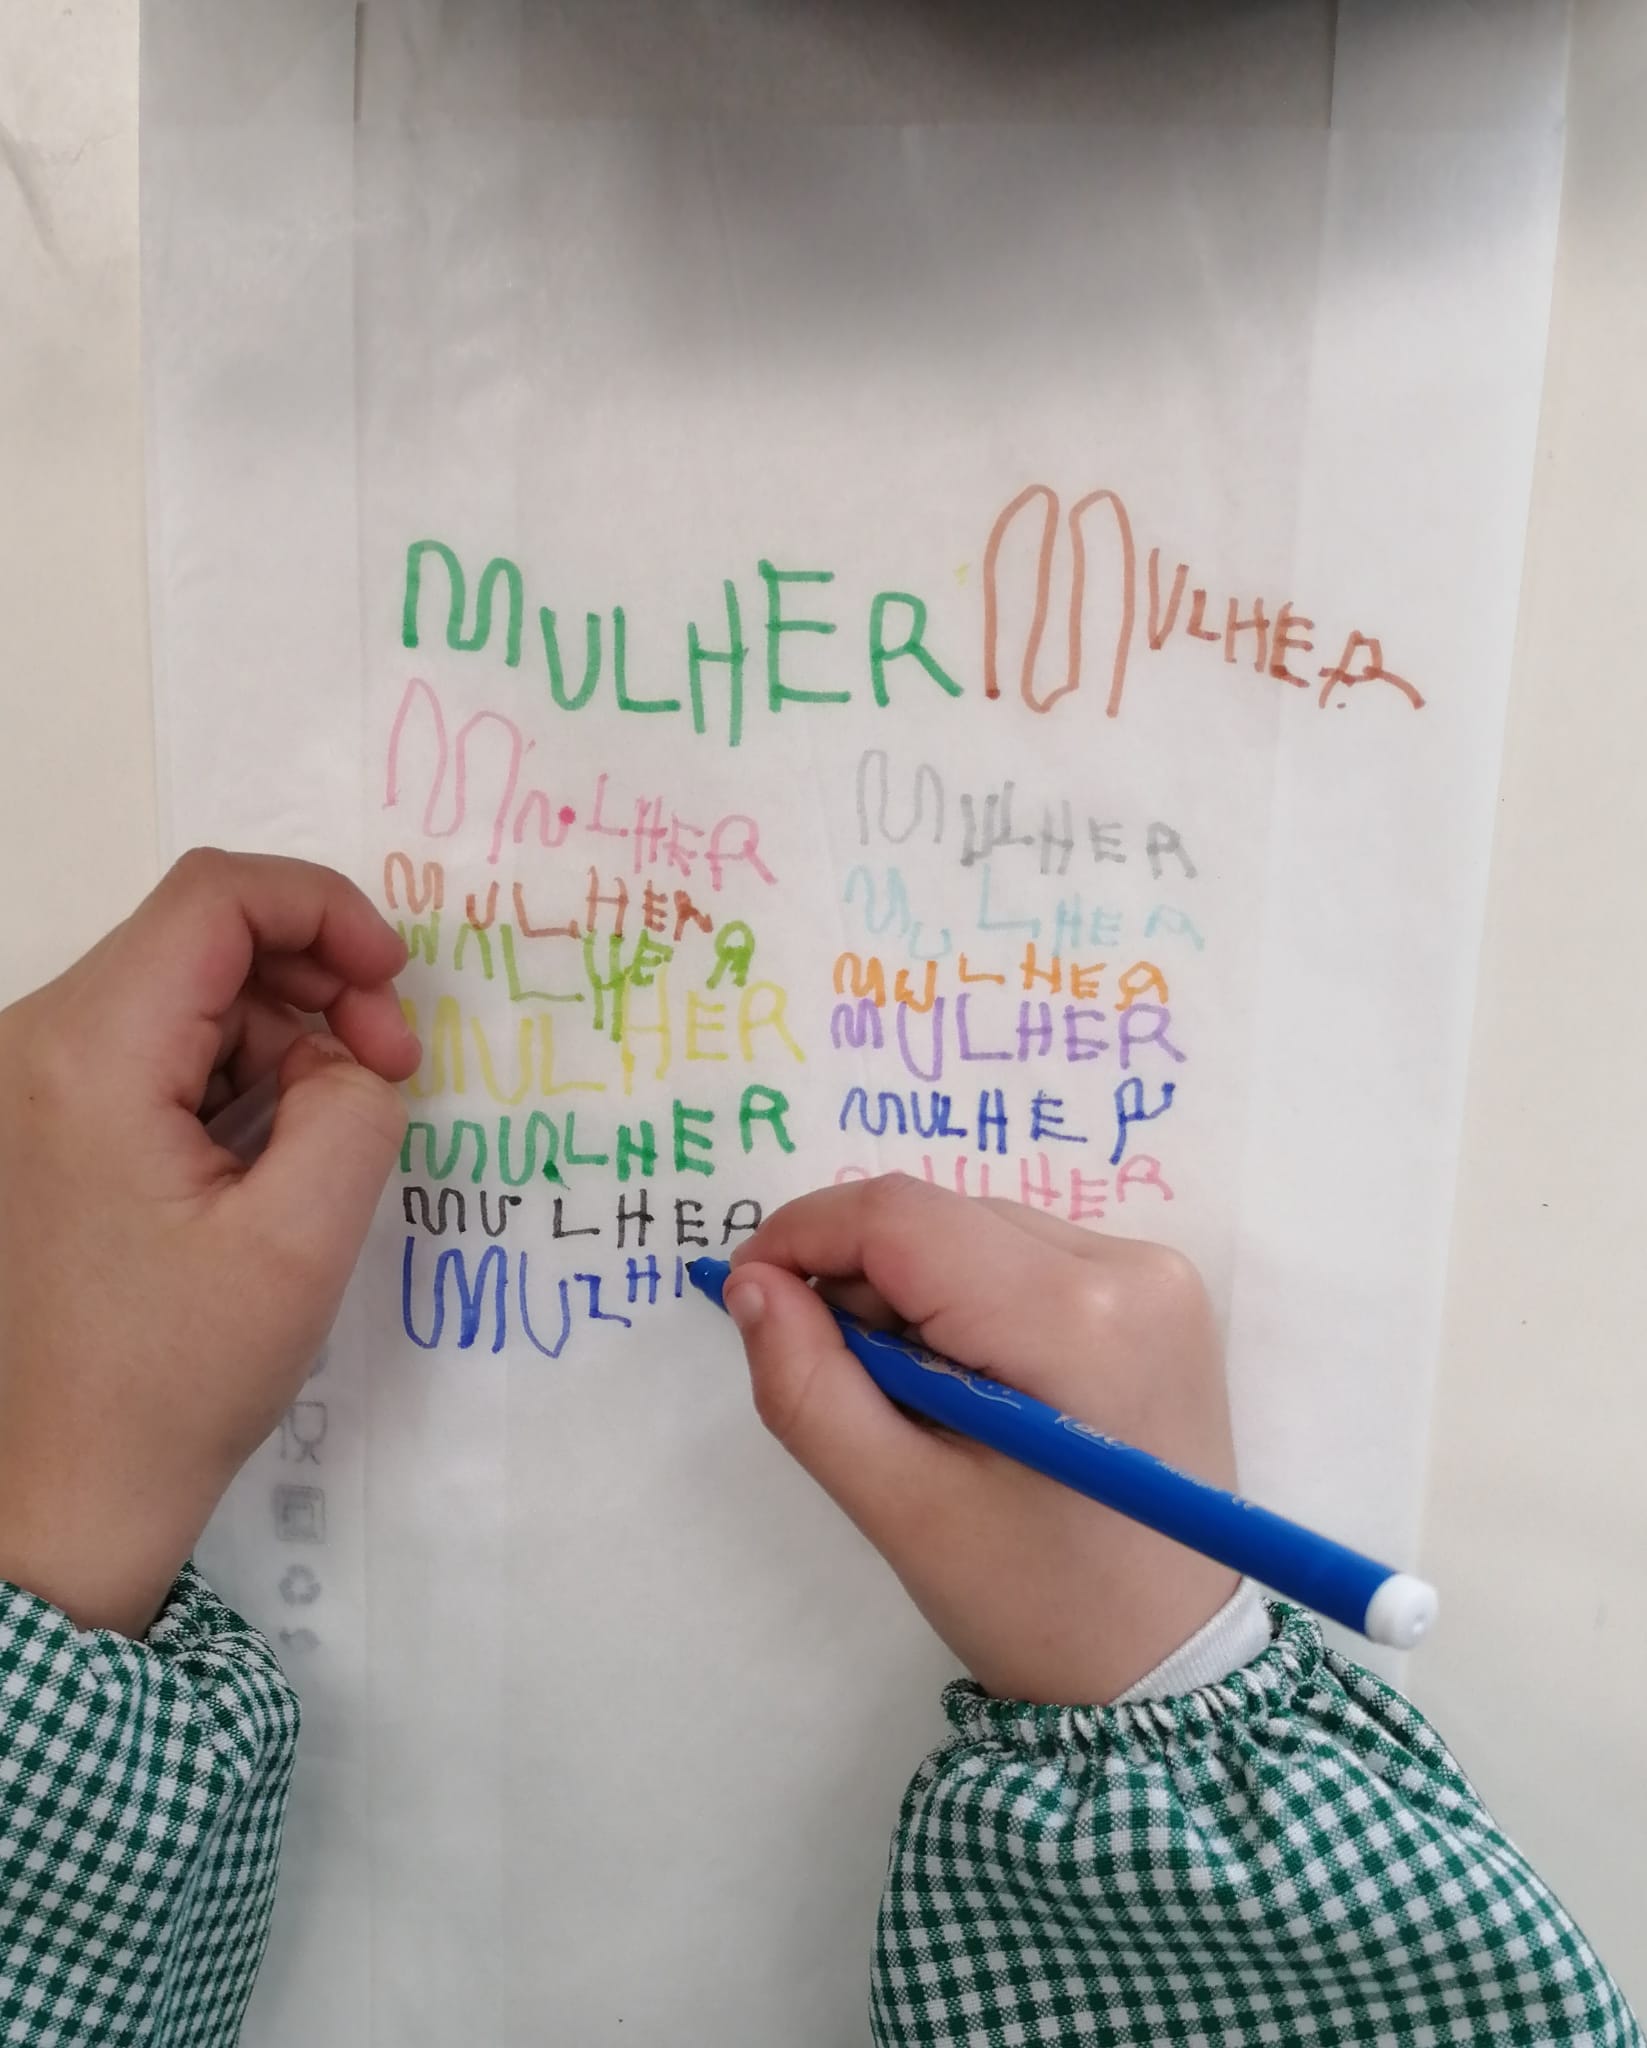 MULHER MULHER
MULHER MULHER
MULHER MULHER
MULHER MULHER
MULHER MULHER
MULHER MULHER
MULHER MULHER
MULH
BIC